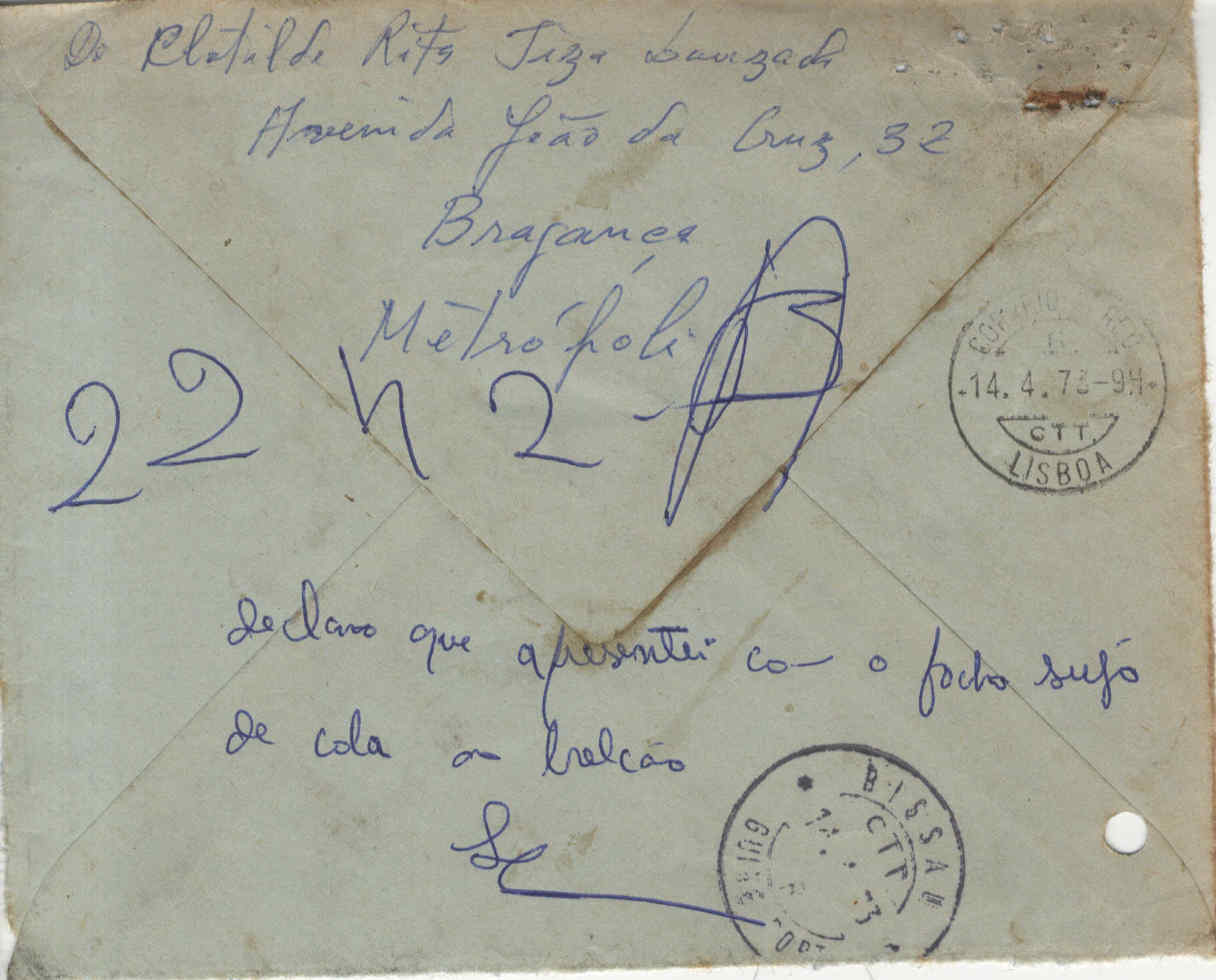 De Clotilde Rita Tiza
Avenida João da Cruz, 32
Bragança
Métrópóli
22 42
CORREIO
14. 4. 73-9H
CTT.
LISBOA
declaro que apresentei co— o fecho sujo
de cola no balcão
BISSAU
CTT
14. . 73
GUINÉ